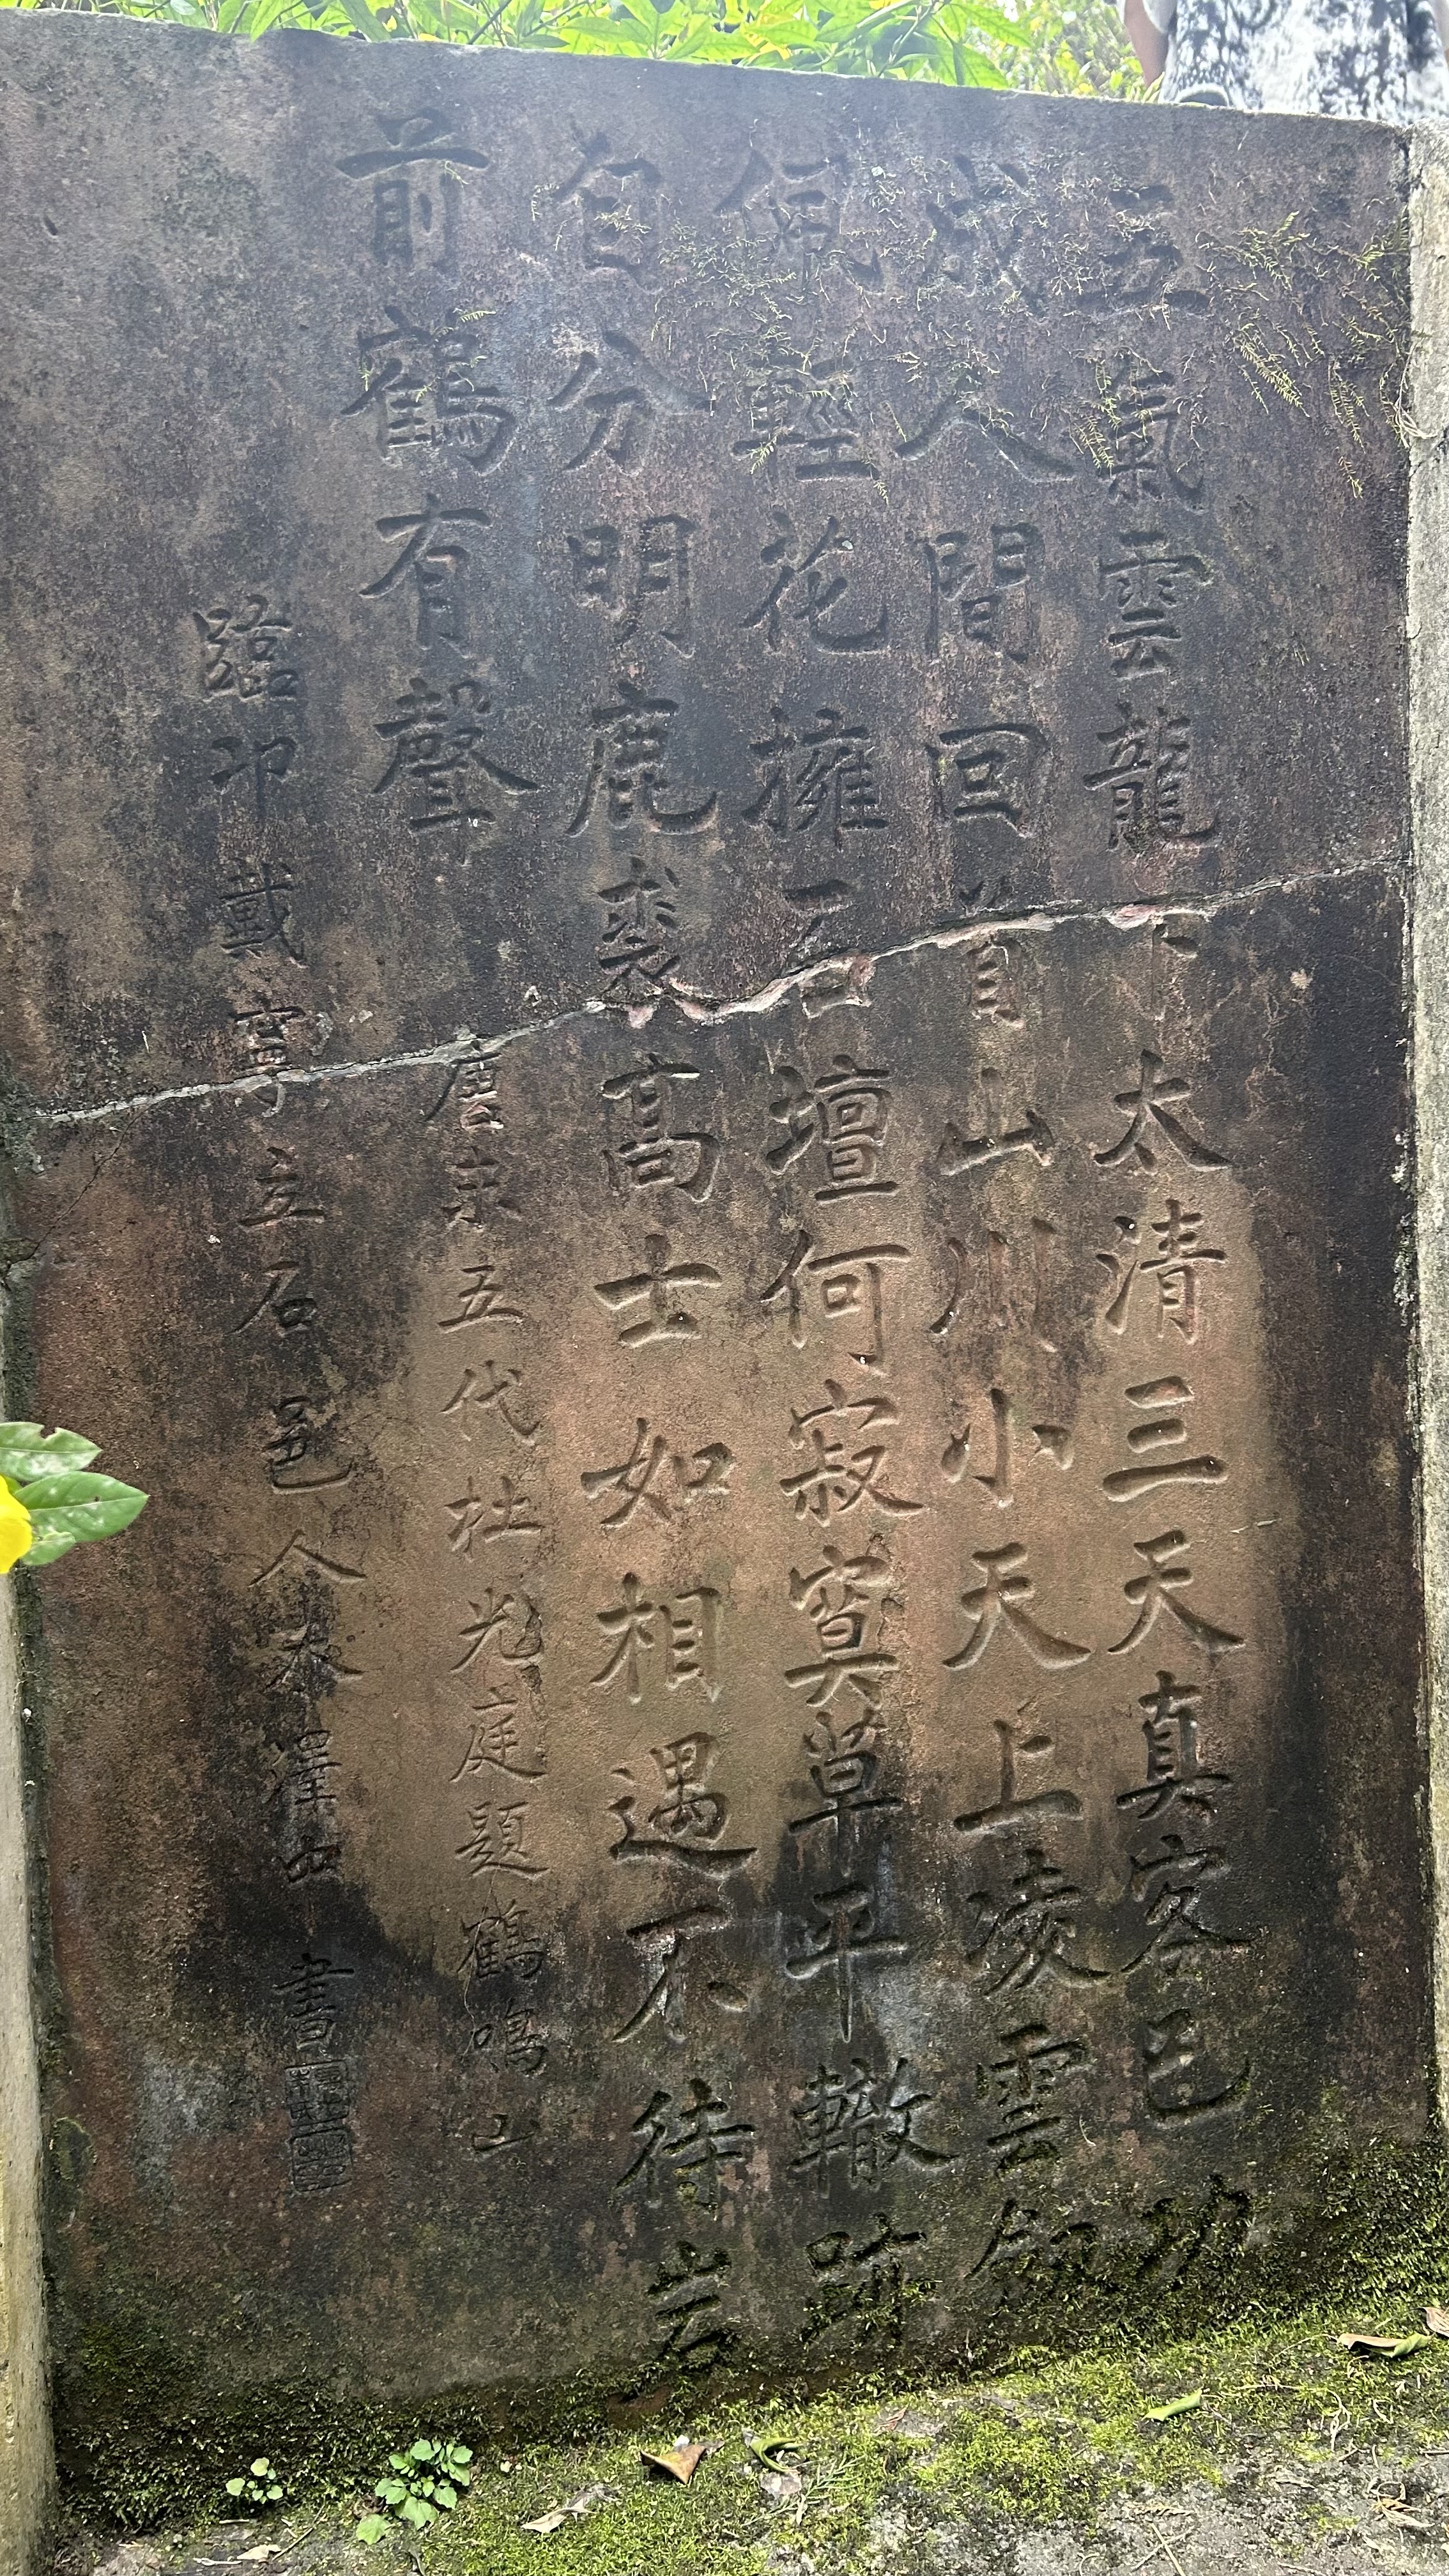 五氣雲龍下太清三天真客已功
成人間回首山川小天上凌雲劍
佩輕花擁石壇何寂寞草平轍跡
自分明鹿裘高士如相遇不待岩
前鶴有聲
唐末五代杜光庭題鶴鳴山
臨邛戴寧立石邑人
書